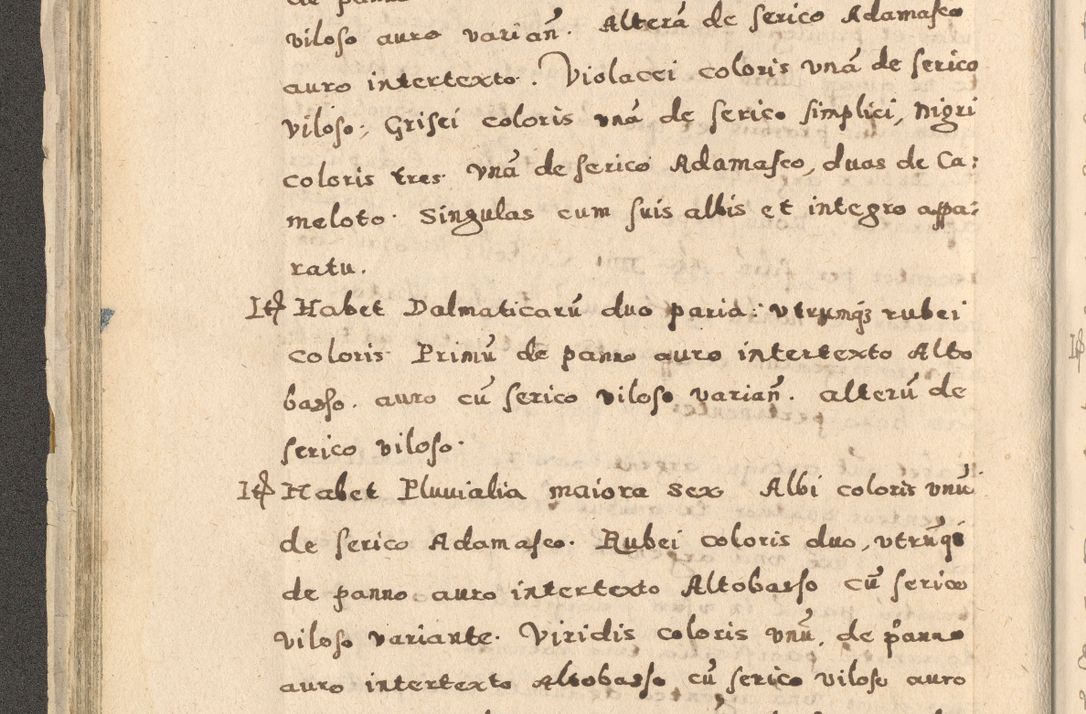 de panno
viloso auro varian̄. Alterā de serico Adamasco
auro intertexto. Violacei coloris vnā de serico
viloso; Grisei coloris vnā de serico simplici, nigri
coloris tres. vnā de serico Adamasco, duas de Ca:
meloto. Singulas cum suis albis et integro appa:
ratu.
Itꝫ Habet Dalmaticarū duo paria: vtrumqꝫ rubei
coloris Primū de panno auro intertexto Alto
basso. auro cū serico viloso varian̄. alterū de
serico viloso.
Itꝫ Habet Pluuialia maiora sex Albi coloris vnū
de serico Adamasco. Rubei coloris duo, vtrūqꝫ
de panno auro intertexto Altobasso cū serico
viloso variante. Viridis coloris vnū, de panno
auro intertexto Altobasso cū serico viloso auro